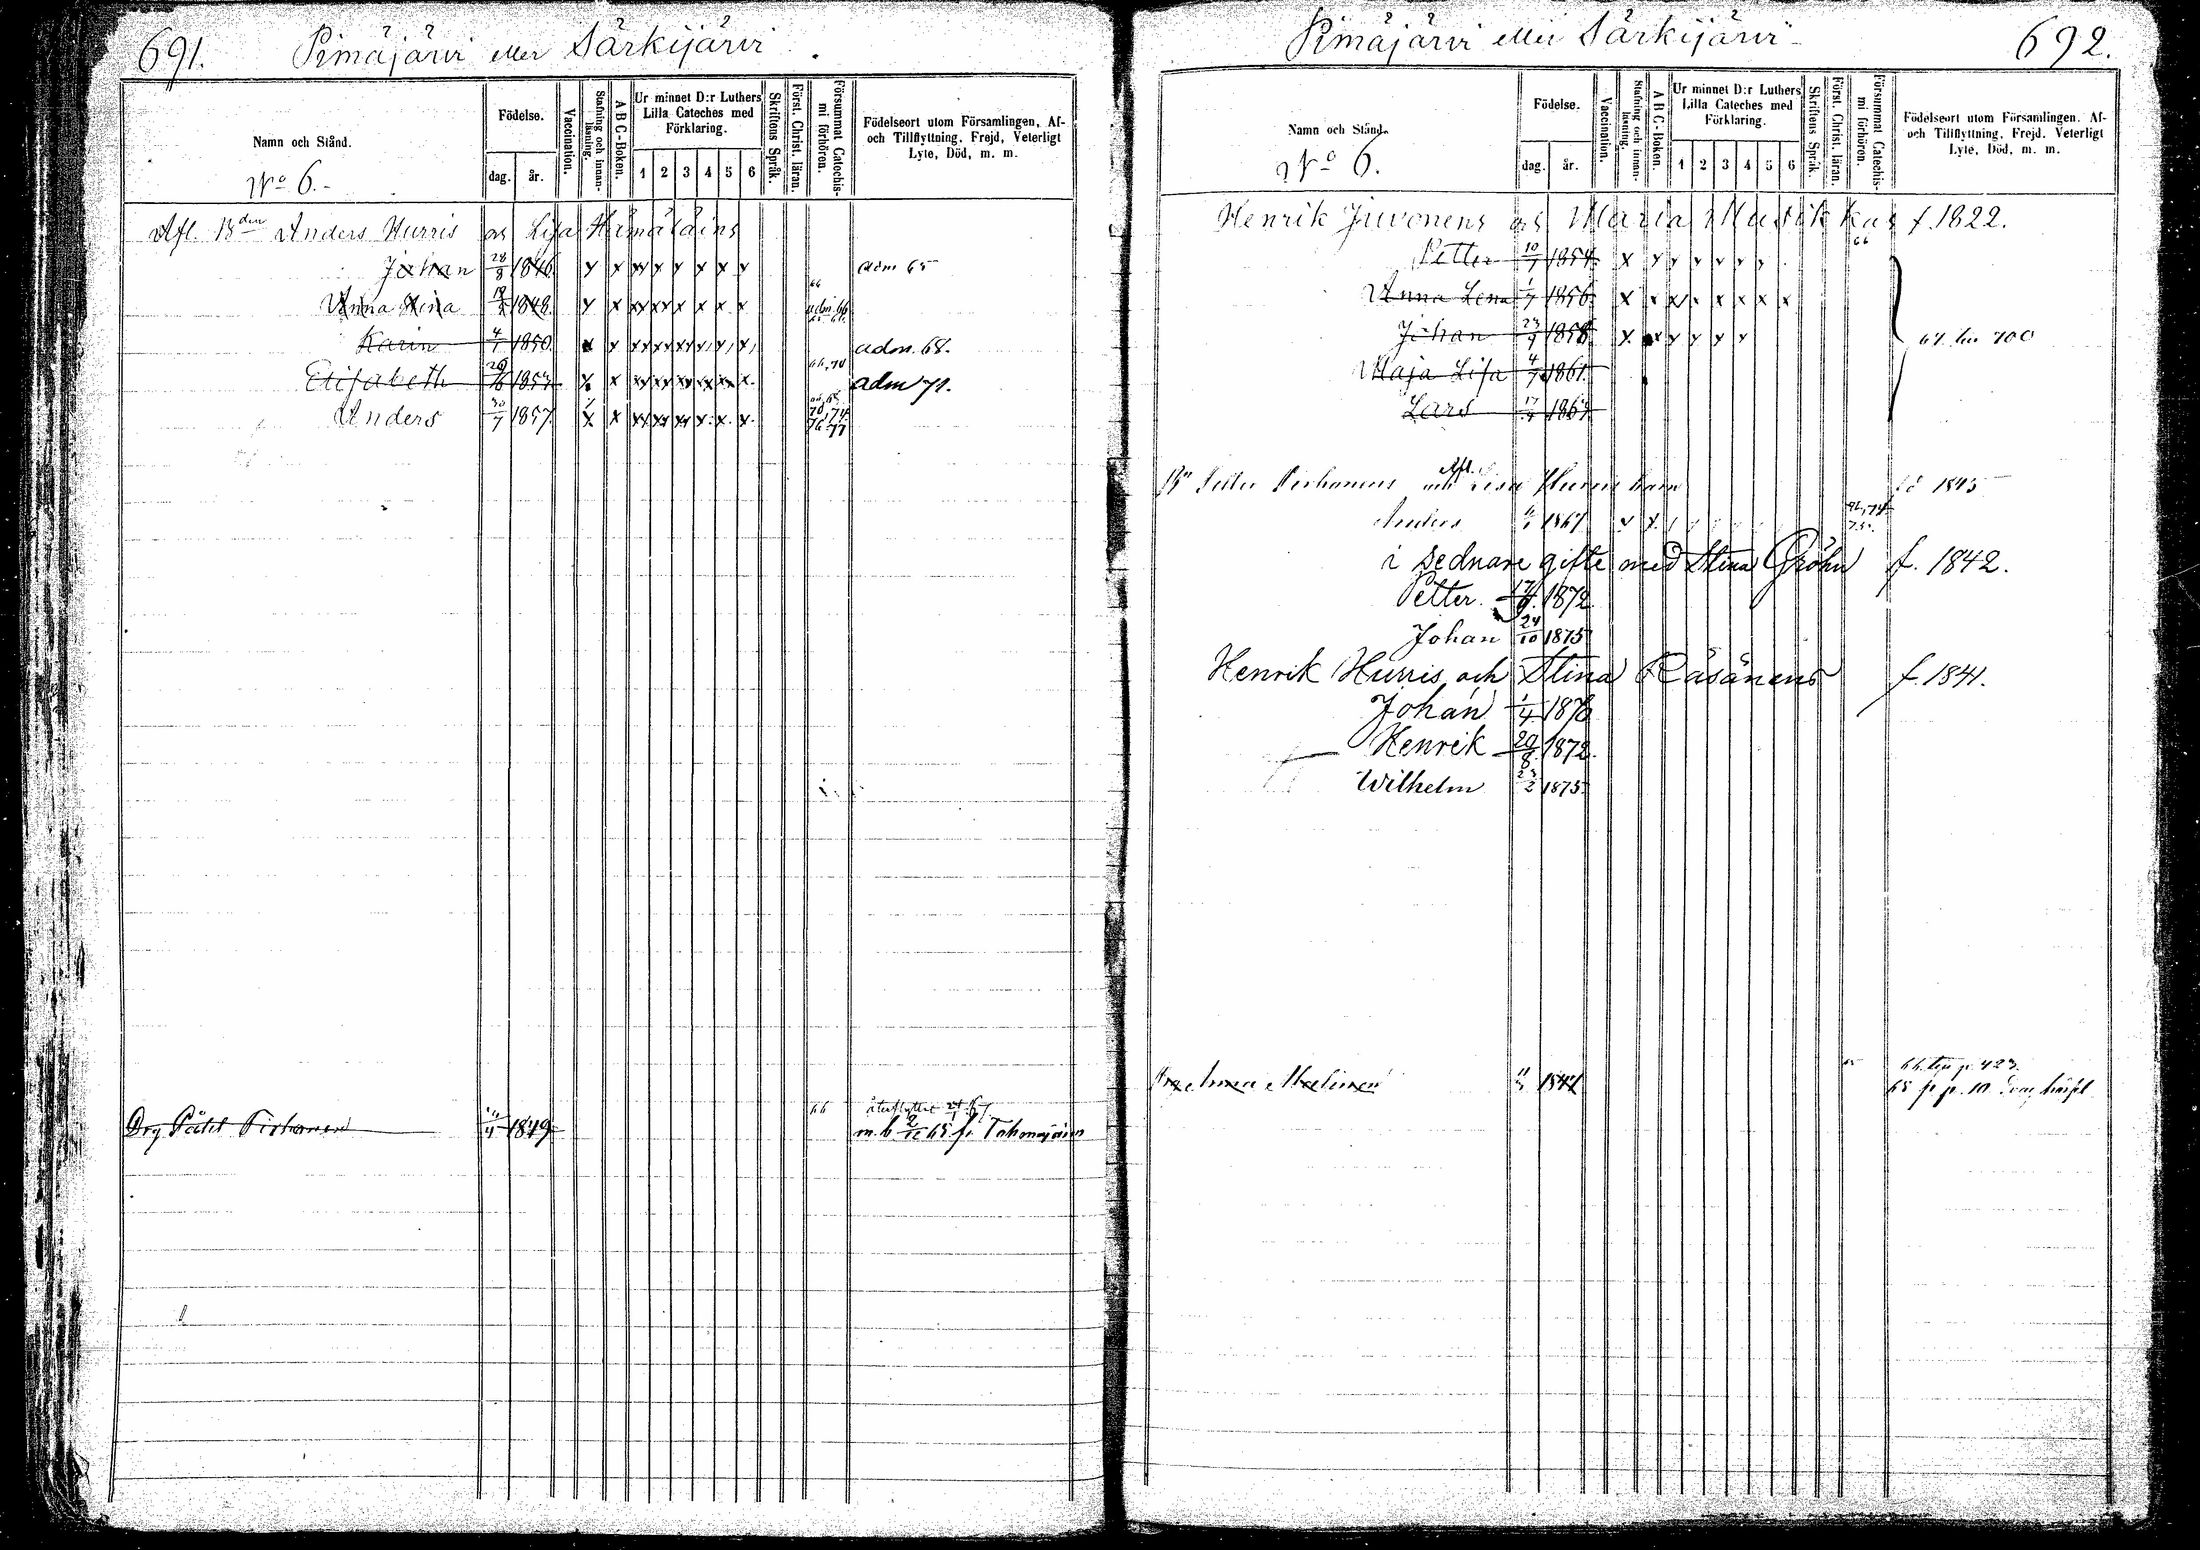 691. Pimäjärvi eller Särkijärvi
Namn och Stånd.
No 6.
Födelse.
dag. år.
Vaccination.
Stafning och innanläsning.
A B C-Boken.
Ur minnet D:r Luthers Lilla Cateches med Förklaring.
1 2 3 4 5 6
Skriftens Språk.
Först. Christ. läran.
Försummat Catechismi förhören.
Födelseort utom Församlingen, Af- och Tillflyttning, Frejd, Veterligt Lyte, Död, m. m.
Afl. Bden Anders Hurris o s Lisa Hämäläins
Johan 28/8 1846 x x xx x x x x x adm 65
Anna Stina 1848 x x xx xx x x x x 66 adm 66
Karin 4/1 1850 x x xx xx xx x x x adm. 68.
Elisabeth 1854 x x xx xx xx xx x x. 66, 70 adm 71.
Anders 30/7 1857 x x xx xx xx x x x 70, 74 76 77
Drg Pätil Pirhonen 1849 66 återflyttat
m. b 2/12 65 fr Tohmajärvi
Pimäjärvi eller Särkijärvi 692.
Namn och Stånd.
No 6.
Födelse.
dag. år.
Vaccination.
Stafning och innanläsning.
A B C-Boken.
Ur minnet D:r Luthers Lilla Cateches med Förklaring.
1 2 3 4 5 6
Skriftens Språk.
Först. Christ. läran.
Försummat Catechismi förhören.
Födelseort utom Församlingen. Af- och Tillflyttning, Frejd. Veterligt Lyte, Död, m. m.
Henrik Juvonens o s Maria Mustikkas f. 1822.
Petter 10/7 1854 x x x x x x x 66
Anna Lena 1/7 1856 x x x x x x x x
Johan 23/9 1858 x x x x x x 67 700
Maja Lisa 4/7 1861
Lars 1864
Petter Pirhonens och Afl. Lisa Hurris barn 1845
Anders 1867 x x 74 75
i sednare gifte med Stina Gröhn f. 1842.
Petter. 17/9 1872
Johan 24/10 1875
Henrik Hurris och Stina Räsänens f. 1841.
Johan 1/4 1870
Henrik 20/8 1872
Wilhelm 23/2 1875
Anna 1847 66 p. 423.
65 fr p. 10